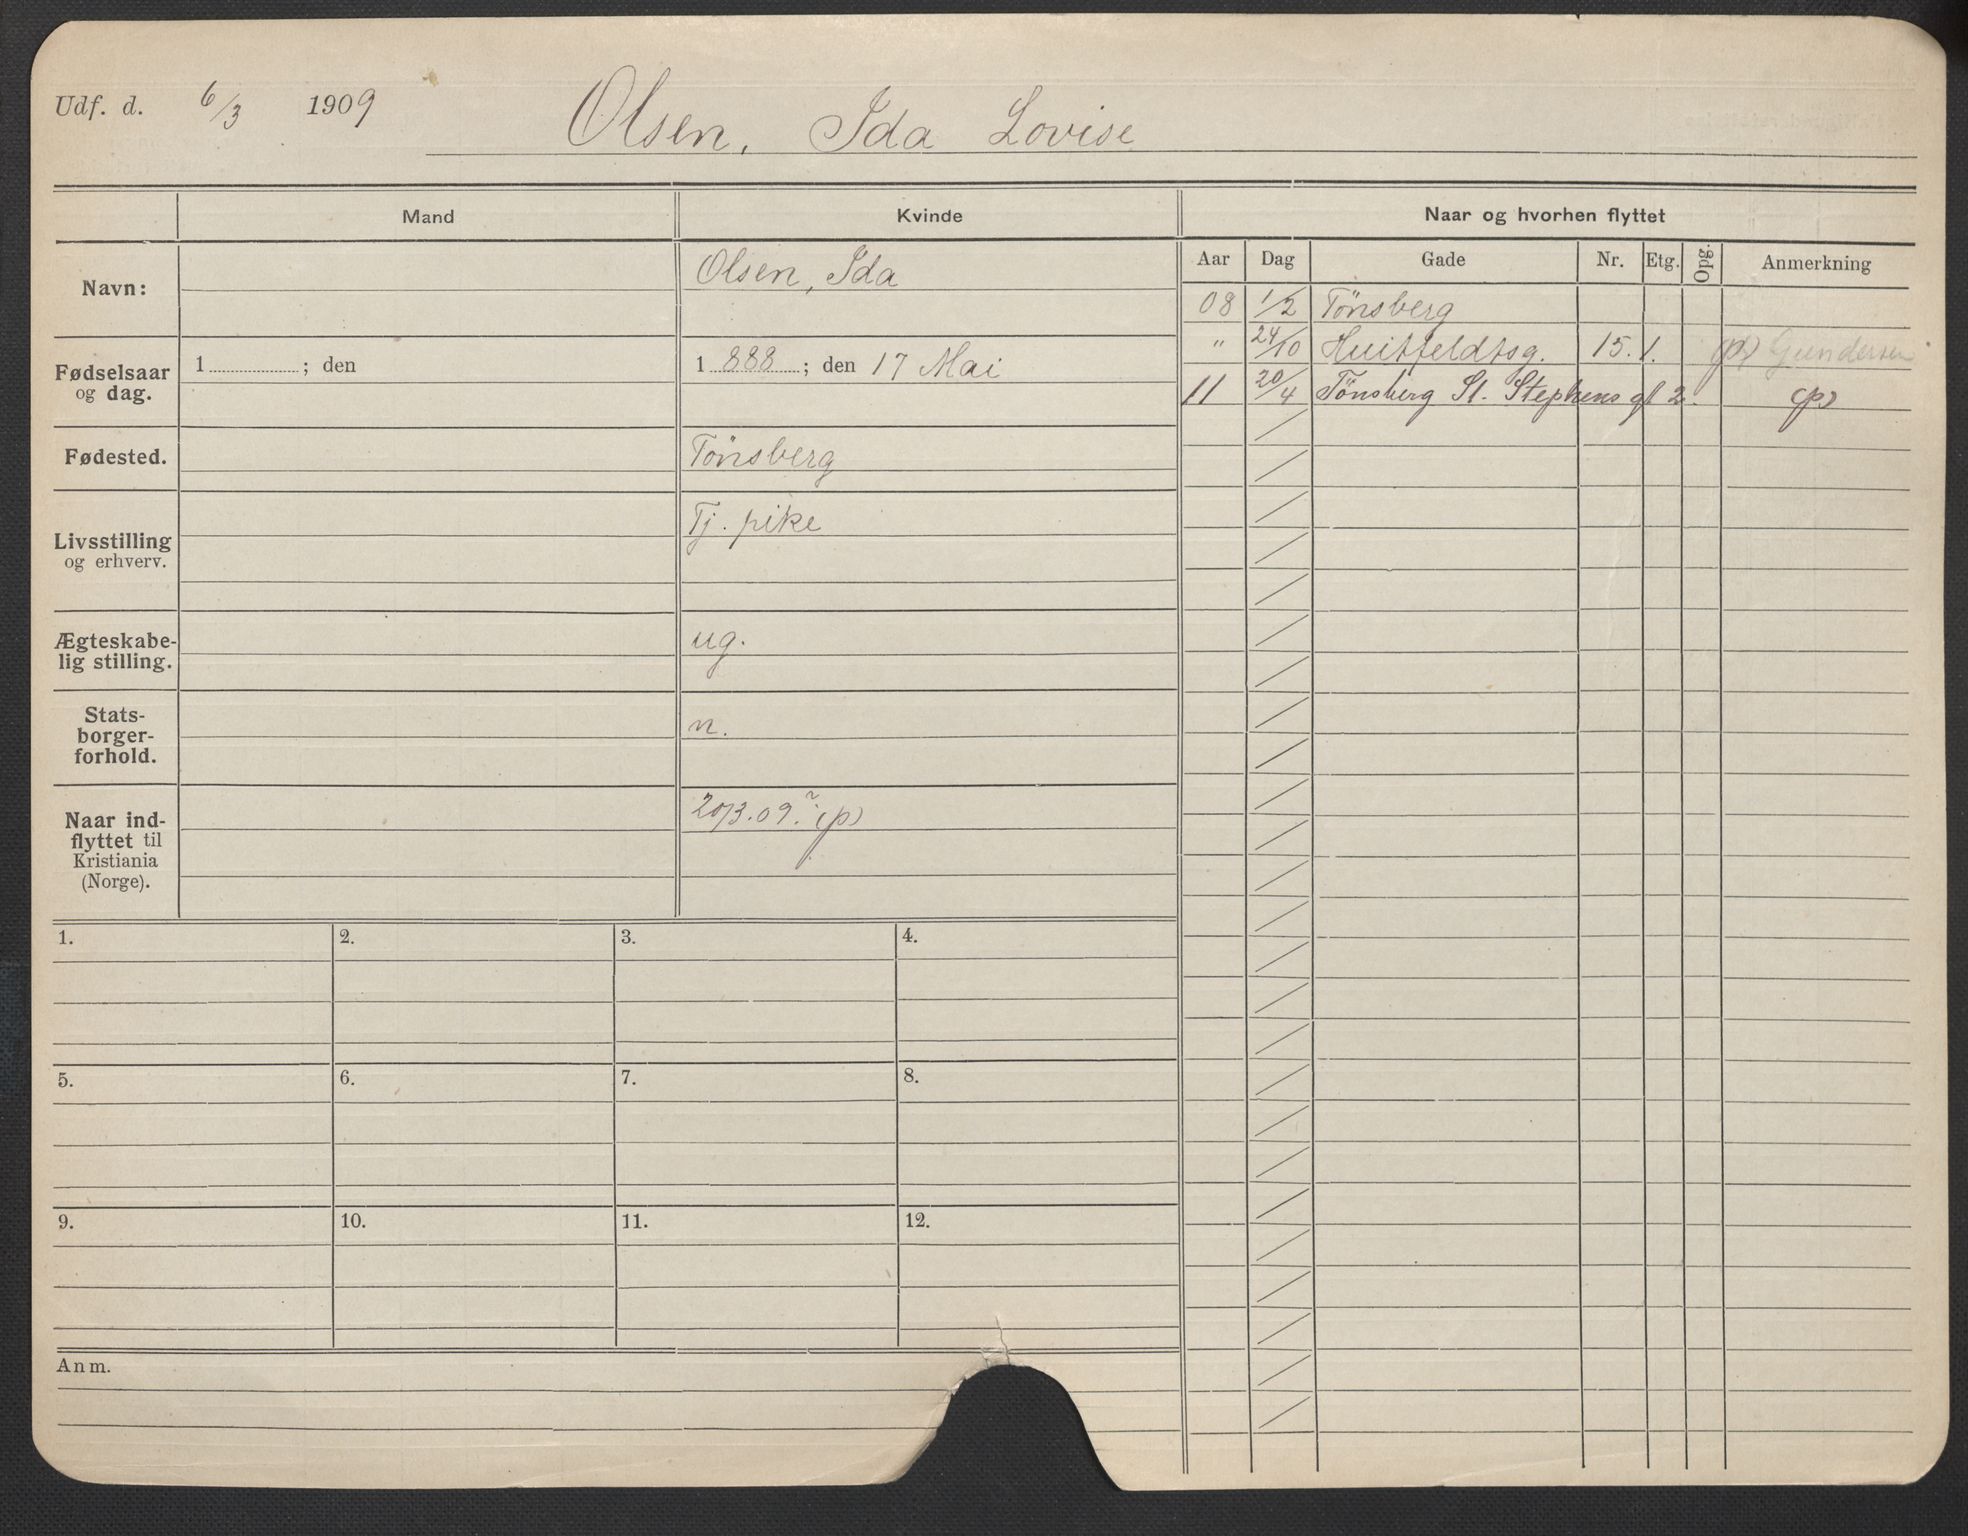 Udf. d. 6/3 1909 Olsen, Ida Lovise
Mand Kvinde Naar og hvorhen flyttet
Aar Dag Gade Nr. Etg. Opg. Anmerkning
Navn: Olsen, Ida
08 1/2 Tönsberg
" 24/10 Huitfeldtsg. 15. 1. (p) Gundersen
11 20/4 Tönsberg St. Stephens gt 2. (p)
Fødselsaar
og dag.
1 ; den 1 888 ; den 17 Mai
Fødested. Tönsberg
Livsstilling
og erhverv.
Tj. pike
Ægteskabe-
lig stilling.
ug.
Stats-
borger-
forhold.
n.
Naar ind-
flyttet til
Kristiania
(Norge).
20/3.09. (p)
1. 2. 3. 4.
5. 6. 7. 8.
9. 10. 11. 12.
Anm.